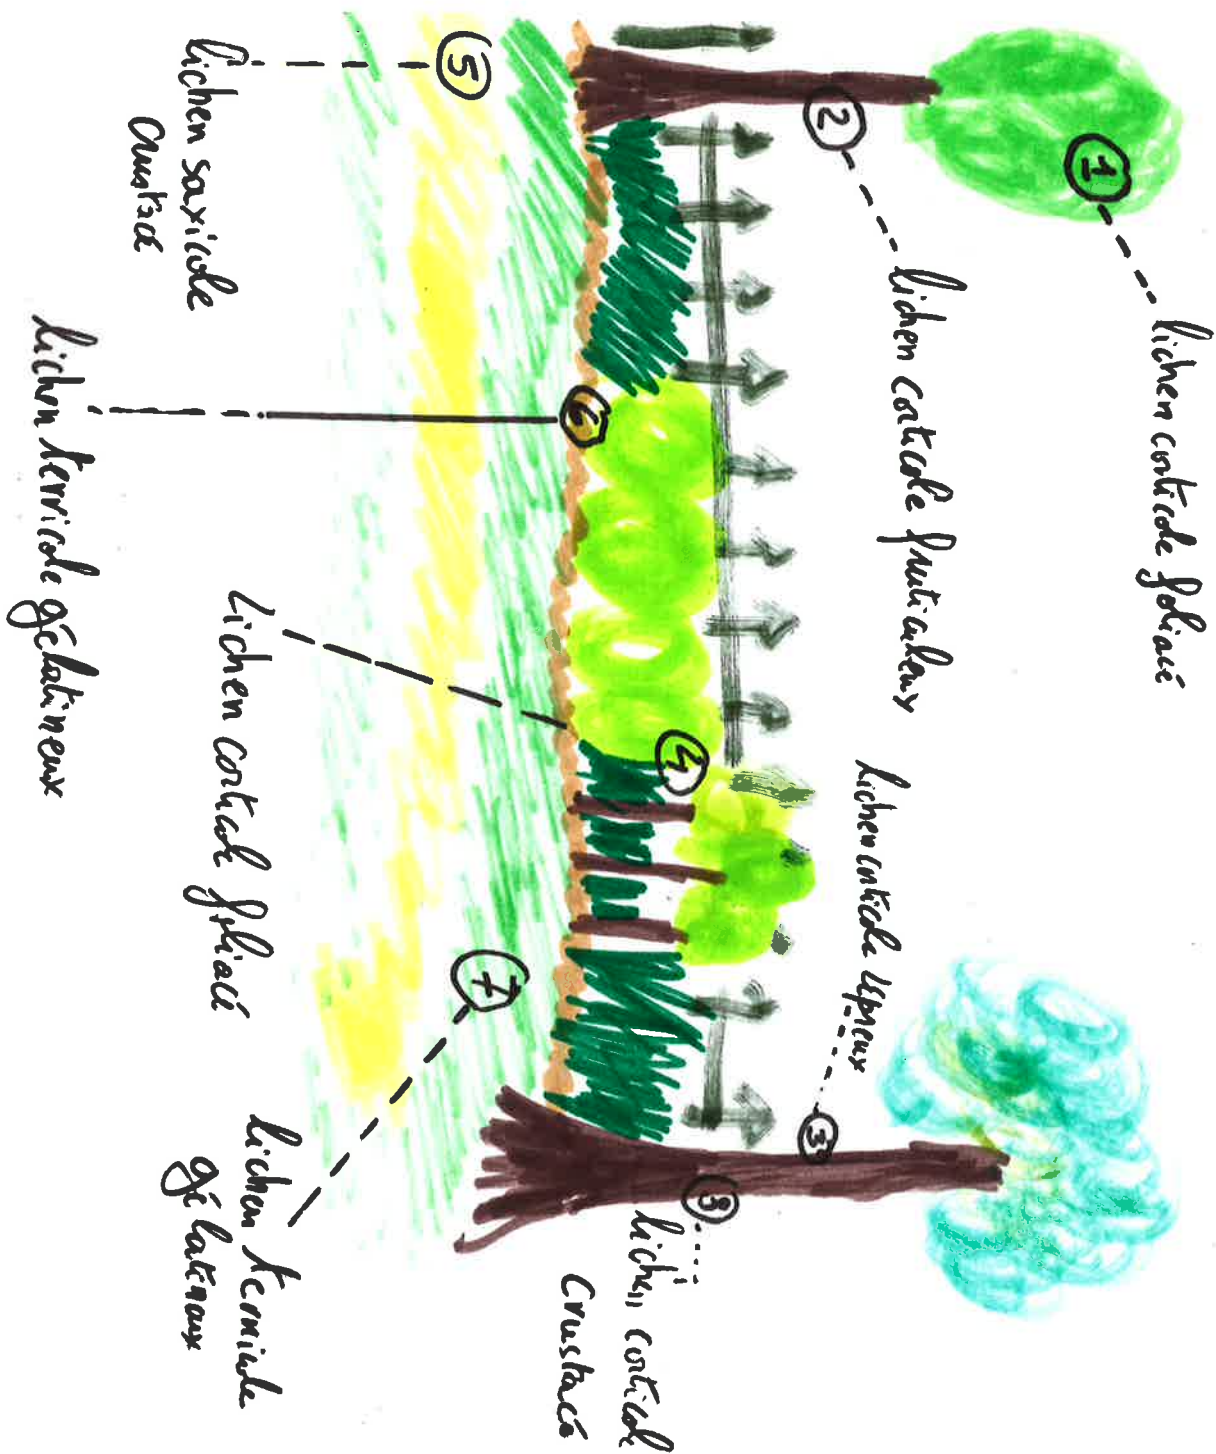 1
lichen corticole foliacé
2
lichen corticole fruticuleux
lichen corticole lépreux
3
4
8
lichen corticole
crustacé
5
lichen saxicole
crustacé
6
lichen terricole gélatineux
Lichen corticole foliacé
7
lichen terricole
gélatineux